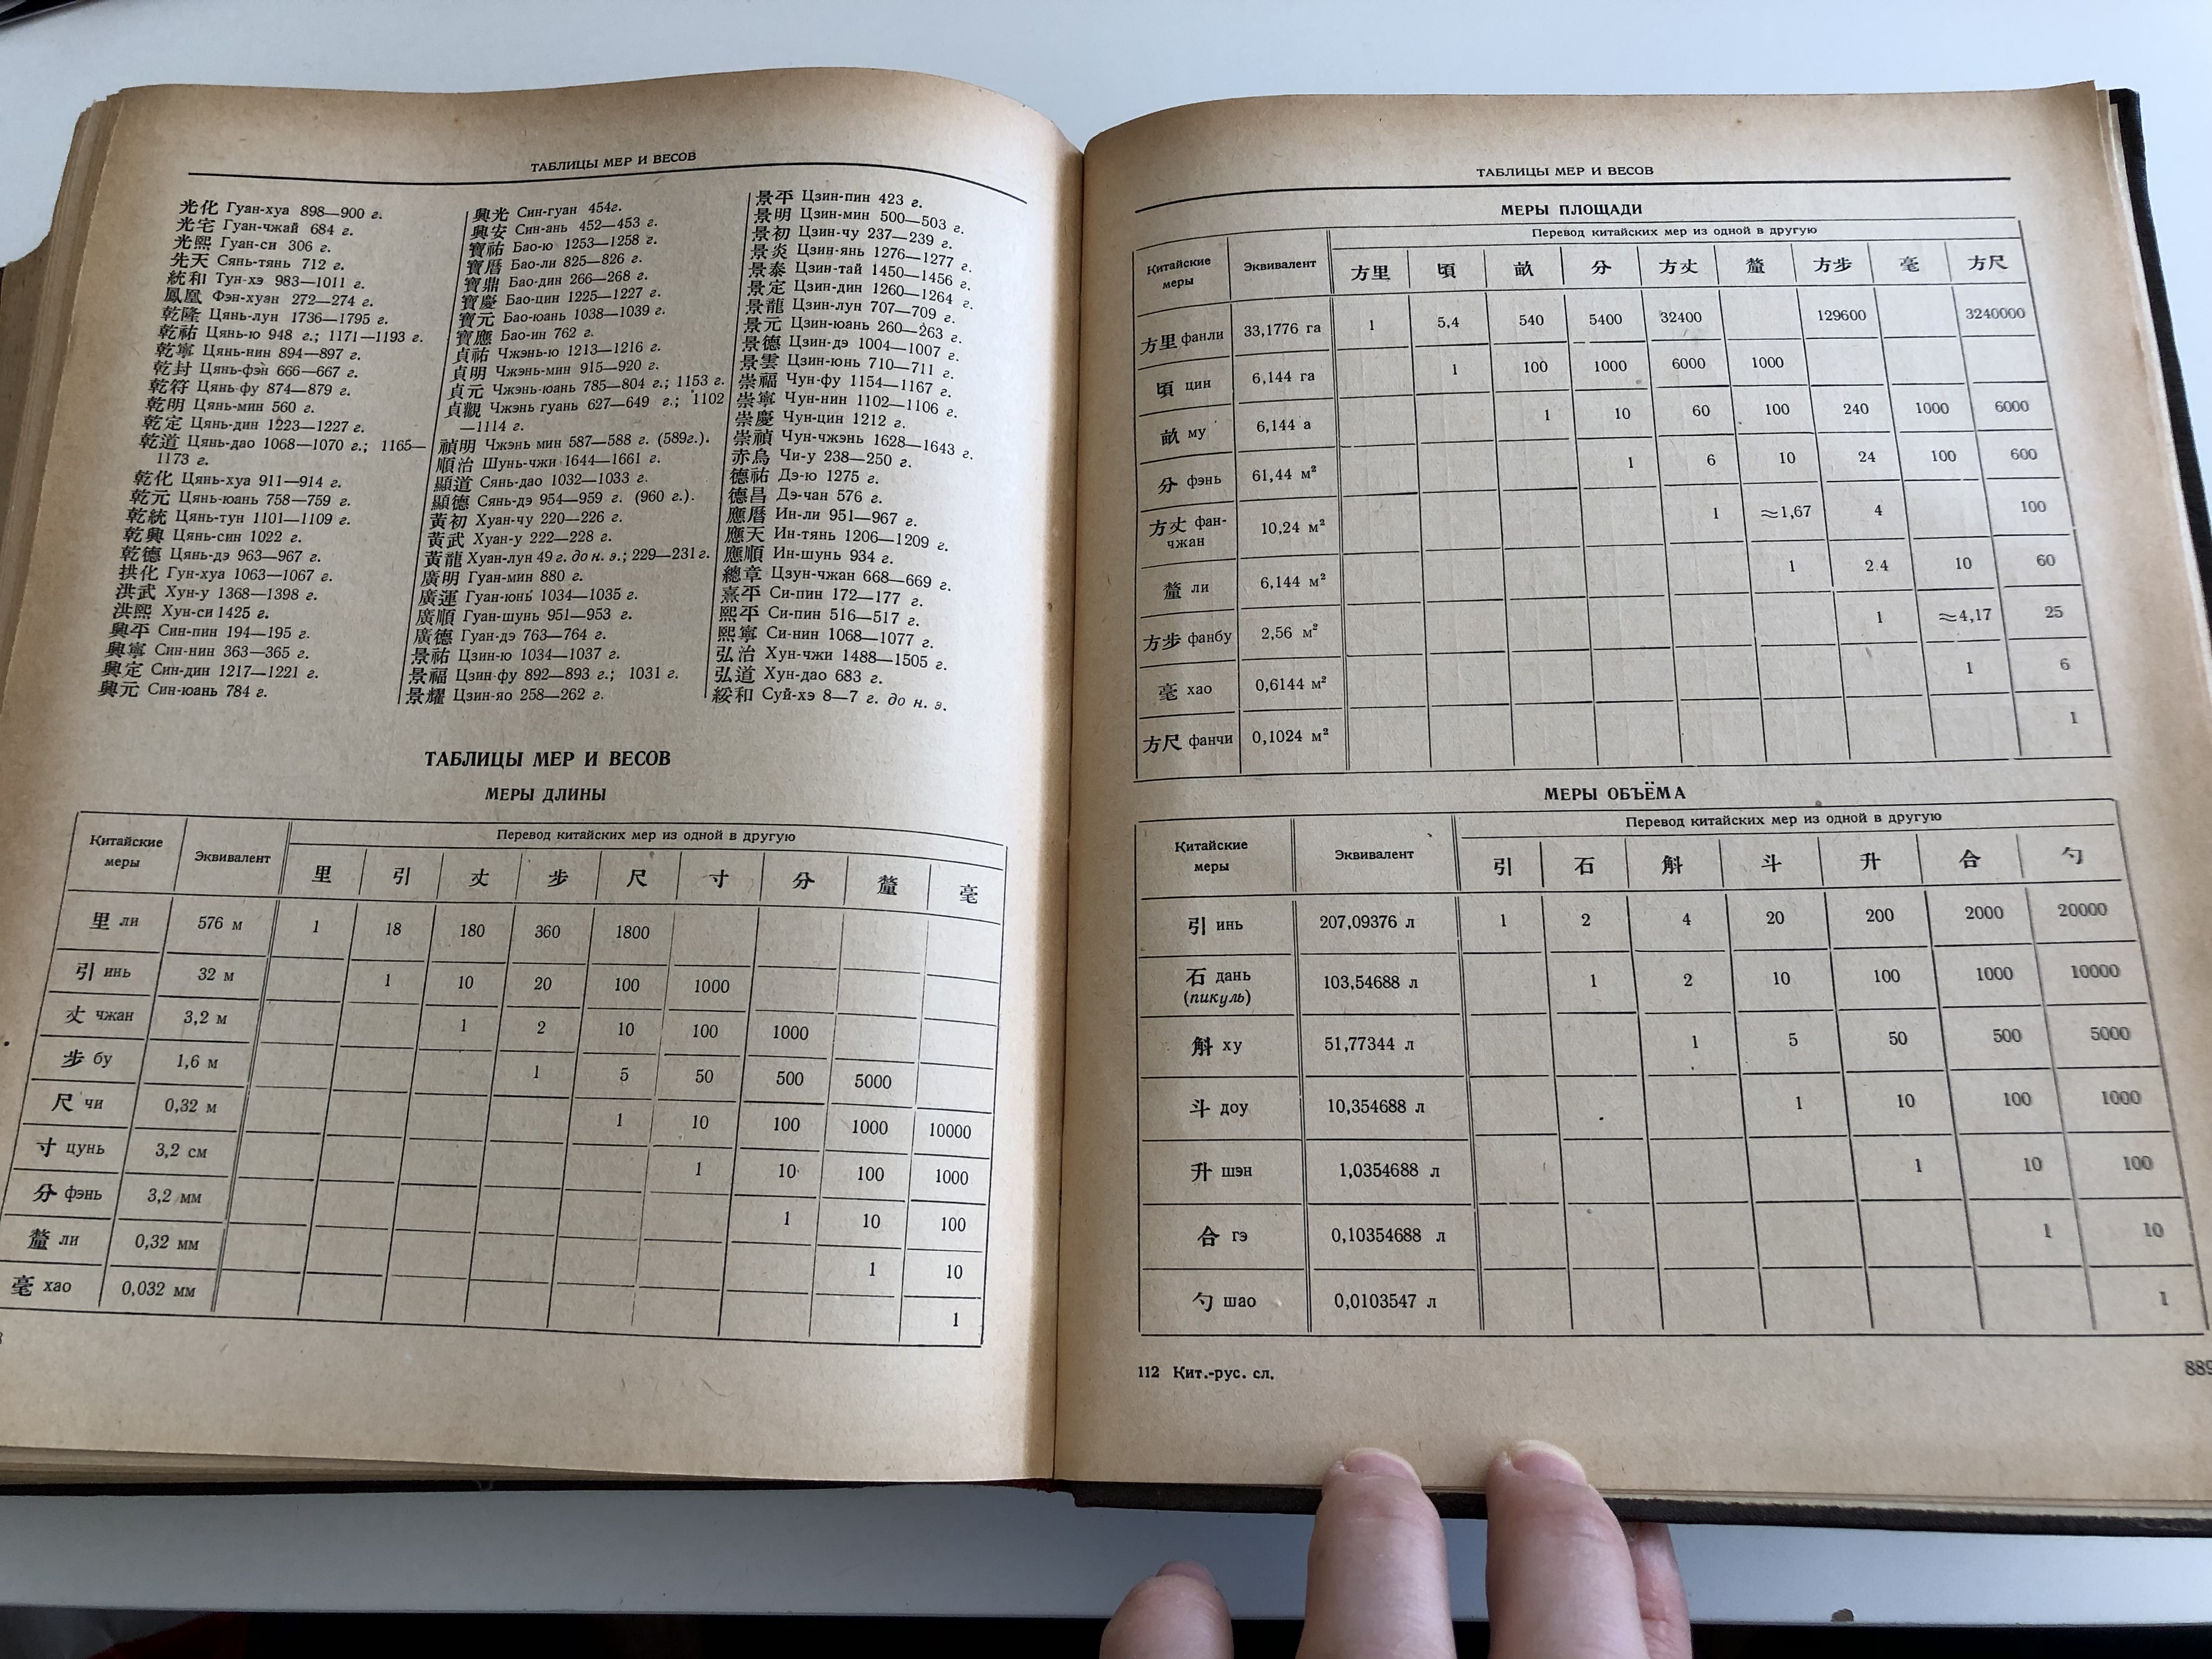 ТАБЛИЦЫ МЕР И ВЕСОВ
光化 Гуан-хуа 898—900 г.
光宅 Гуан-чжай 684 г.
光熙 Гуан-си 306 г.
先天 Сянь-тянь 712 г.
統和 Тун-хэ 983—1011 г.
鳳凰 Фэн-хуан 272—274 г.
乾隆 Цянь-лун 1736—1795 г.
乾祐 Цянь-ю 948 г.; 1171—1193 г.
乾寧 Цянь-нин 894—897 г.
乾封 Цянь-фэн 666—667 г.
乾符 Цянь-фу 874—879 г.
乾明 Цянь-мин 560 г.
乾定 Цянь-дин 1223—1227 г.
乾道 Цянь-дао 1068—1070 г.; 1165—
1173 г.
乾化 Цянь-хуа 911—914 г.
乾元 Цянь-юань 758—759 г.
乾統 Цянь-тун 1101—1109 г.
乾興 Цянь-син 1022 г.
乾德 Цянь-дэ 963—967 г.
拱化 Гун-хуа 1063—1067 г.
洪武 Хун-у 1368—1398 г.
洪熙 Хун-си 1425 г.
興平 Син-пин 194—195 г.
興寧 Син-нин 363—365 г.
興定 Син-дин 1217—1221 г.
興元 Син-юань 784 г.
興光 Син-гуан 454г.
興安 Син-ань 452—453 г.
寶祐 Бао-ю 1253—1258 г.
寶曆 Бао-ли 825—826 г.
寶鼎 Бао-дин 266—268 г.
寶慶 Бао-цин 1225—1227 г.
寶元 Бао-юань 1038—1039 г.
寶應 Бао-ин 762 г.
貞祐 Чжэнь-ю 1213—1216 г.
貞明 Чжэнь-мин 915—920 г.
貞元 Чжэнь-юань 785—804 г.; 1153 г.
貞觀 Чжэнь гуань 627—649 г.; 1102
—1114 г.
禎明 Чжэнь мин 587—588 г. (589г.).
順治 Шунь-чжи 1644—1661 г.
顯道 Сянь-дао 1032—1033 г.
顯德 Сянь-дэ 954—959 г. (960 г.).
黃初 Хуан-чу 220—226 г.
黃武 Хуан-у 222—228 г.
黃龍 Хуан-лун 49 г. до н. э.; 229—231 г.
廣明 Гуан-мин 880 г.
廣運 Гуан-юнь 1034—1035 г.
廣順 Гуан-шунь 951—953 г.
廣德 Гуан-дэ 763—764 г.
景祐 Цзин-ю 1034—1037 г.
景福 Цзин-фу 892—893 г.; 1031 г.
景耀 Цзин-яо 258—262 г.
景平 Цзин-пин 423 г.
景明 Цзин-мин 500—503 г.
景初 Цзин-чу 237—239 г.
景炎 Цзин-янь 1276—1277 г.
景泰 Цзин-тай 1450—1456 г.
景定 Цзин-дин 1260—1264 г.
景龍 Цзин-лун 707—709 г.
景元 Цзин-юань 260—263 г.
景德 Цзин-дэ 1004—1007 г.
景雲 Цзин-юнь 710—711 г.
崇福 Чун-фу 1154—1167 г.
崇寧 Чун-нин 1102—1106 г.
崇慶 Чун-цин 1212 г.
崇禎 Чун-чжэнь 1628—1643 г.
赤烏 Чи-у 238—250 г.
德祐 Дэ-ю 1275 г.
德昌 Дэ-чан 576 г.
應曆 Ин-ли 951—967 г.
應天 Ин-тянь 1206—1209 г.
應順 Ин-шунь 934 г.
總章 Цзун-чжан 668—669 г.
熹平 Си-пин 172—177 г.
熙平 Си-пин 516—517 г.
熙寧 Си-нин 1068—1077 г.
弘治 Хун-чжи 1488—1505 г.
弘道 Хун-дао 683 г.
綏和 Суй-хэ 8—7 г. до н. э.
ТАБЛИЦЫ МЕР И ВЕСОВ
МЕРЫ ДЛИНЫ
Китайские меры Эквивалент Перевод китайских мер из одной в другую
里 引 丈 步 尺 寸 分 釐 毫
里 ли 576 м 1 18 180 360 1800
引 инь 32 м 1 10 20 100 1000
丈 чжан 3,2 м 1 2 10 100 1000
步 бу 1,6 м 1 5 50 500 5000
尺 чи 0,32 м 1 10 100 1000 10000
寸 цунь 3,2 см 1 10 100 1000
分 фэнь 3,2 мм 1 10 100
釐 ли 0,32 мм 1 10
毫 хао 0,032 мм 1
ТАБЛИЦЫ МЕР И ВЕСОВ
МЕРЫ ПЛОЩАДИ
Китайские меры Эквивалент Перевод китайских мер из одной в другую
方里 頃 畝 分 方丈 釐 方步 毫 方尺
方里 фанли 33,1776 га 1 5,4 540 5400 32400 129600 3240000
頃 цин 6,144 га 1 100 1000 6000 1000
畝 му 6,144 а 1 10 60 100 240 1000 6000
分 фэнь 61,44 м² 1 6 10 24 100 600
方丈 фан-
чжан 10,24 м² 1 ≈1,67 4 100
釐 ли 6,144 м² 1 2.4 10 60
方步 фанбу 2,56 м² 1 ≈4,17 25
毫 хао 0,6144 м² 1 6
方尺 фанчи 0,1024 м² 1
МЕРЫ ОБЪЁМА
Китайские меры Эквивалент Перевод китайских мер из одной в другую
引 石 斛 斗 升 合 勺
引 инь 207,09376 л 1 2 4 20 200 2000 20000
石 дань
(пикуль) 103,54688 л 1 2 10 100 1000 10000
斛 ху 51,77344 л 1 5 50 500 5000
斗 доу 10,354688 л 1 10 100 1000
升 шэн 1,0354688 л 1 10 100
合 гэ 0,10354688 л 1 10
勺 шао 0,0103547 л 1
112 Кит.-рус. сл.
889